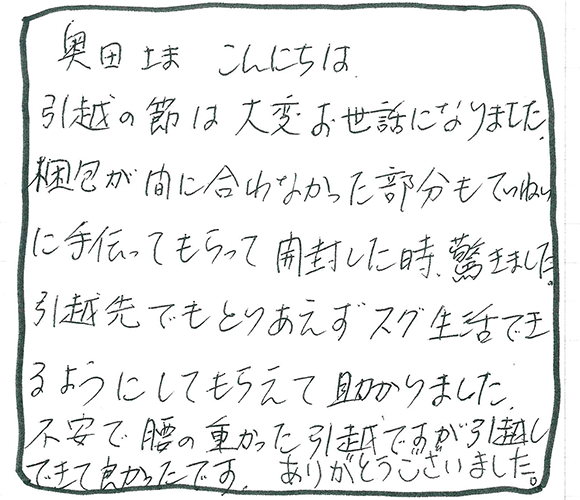 奥田さま こんにちは
引越の節は大変お世話になりました。
梱包が間に合わなかった部分もていねい
に手伝ってもらって開封した時、驚きました。
引越先でもとりあえずスグ生活でき
るようにしてもらえて助かりました。
不安で腰の重かった引越ですが引越し
できて良かったです。ありがとうございました。